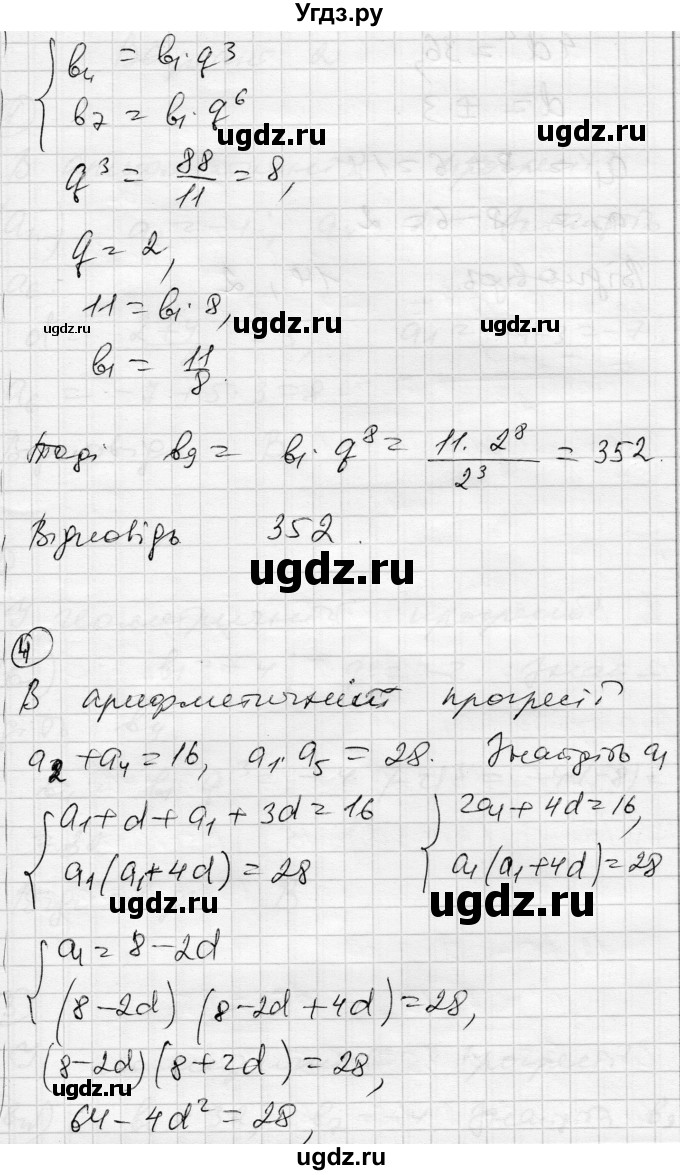 Угдз.ру
b₄ = b₁·q³
b₇ = b₁·q⁶
ugdz.ru
q³ = 88/11 = 8,
ugdz.ru
q = 2,
11 = b₁·8,
ugdz.ru ugdz.ru ugdz.ru
b₁ = 11/8.
Тоді b₉ = b₁·q⁸ = 11·2⁸/2³ = 352.
Відповідь 352.
ugdz.ru
4
В арифметичній прогресії
a₂ + a₄ = 16, a₁·a₅ = 28. Знайдіть a₁
{ a₁ + d + a₁ + 3d = 16 { 2a₁ + 4d = 16,
a₁(a₁ + 4d) = 28 a₁(a₁ + 4d) = 28
ugdz.ru ugdz.ru
{ a₁ = 8 − 2d
(8 − 2d)(8 − 2d + 4d) = 28,
(8 − 2d)(8 + 2d) = 28,
ugdz.ru
64 − 4d² = 28,
ugdz.ru